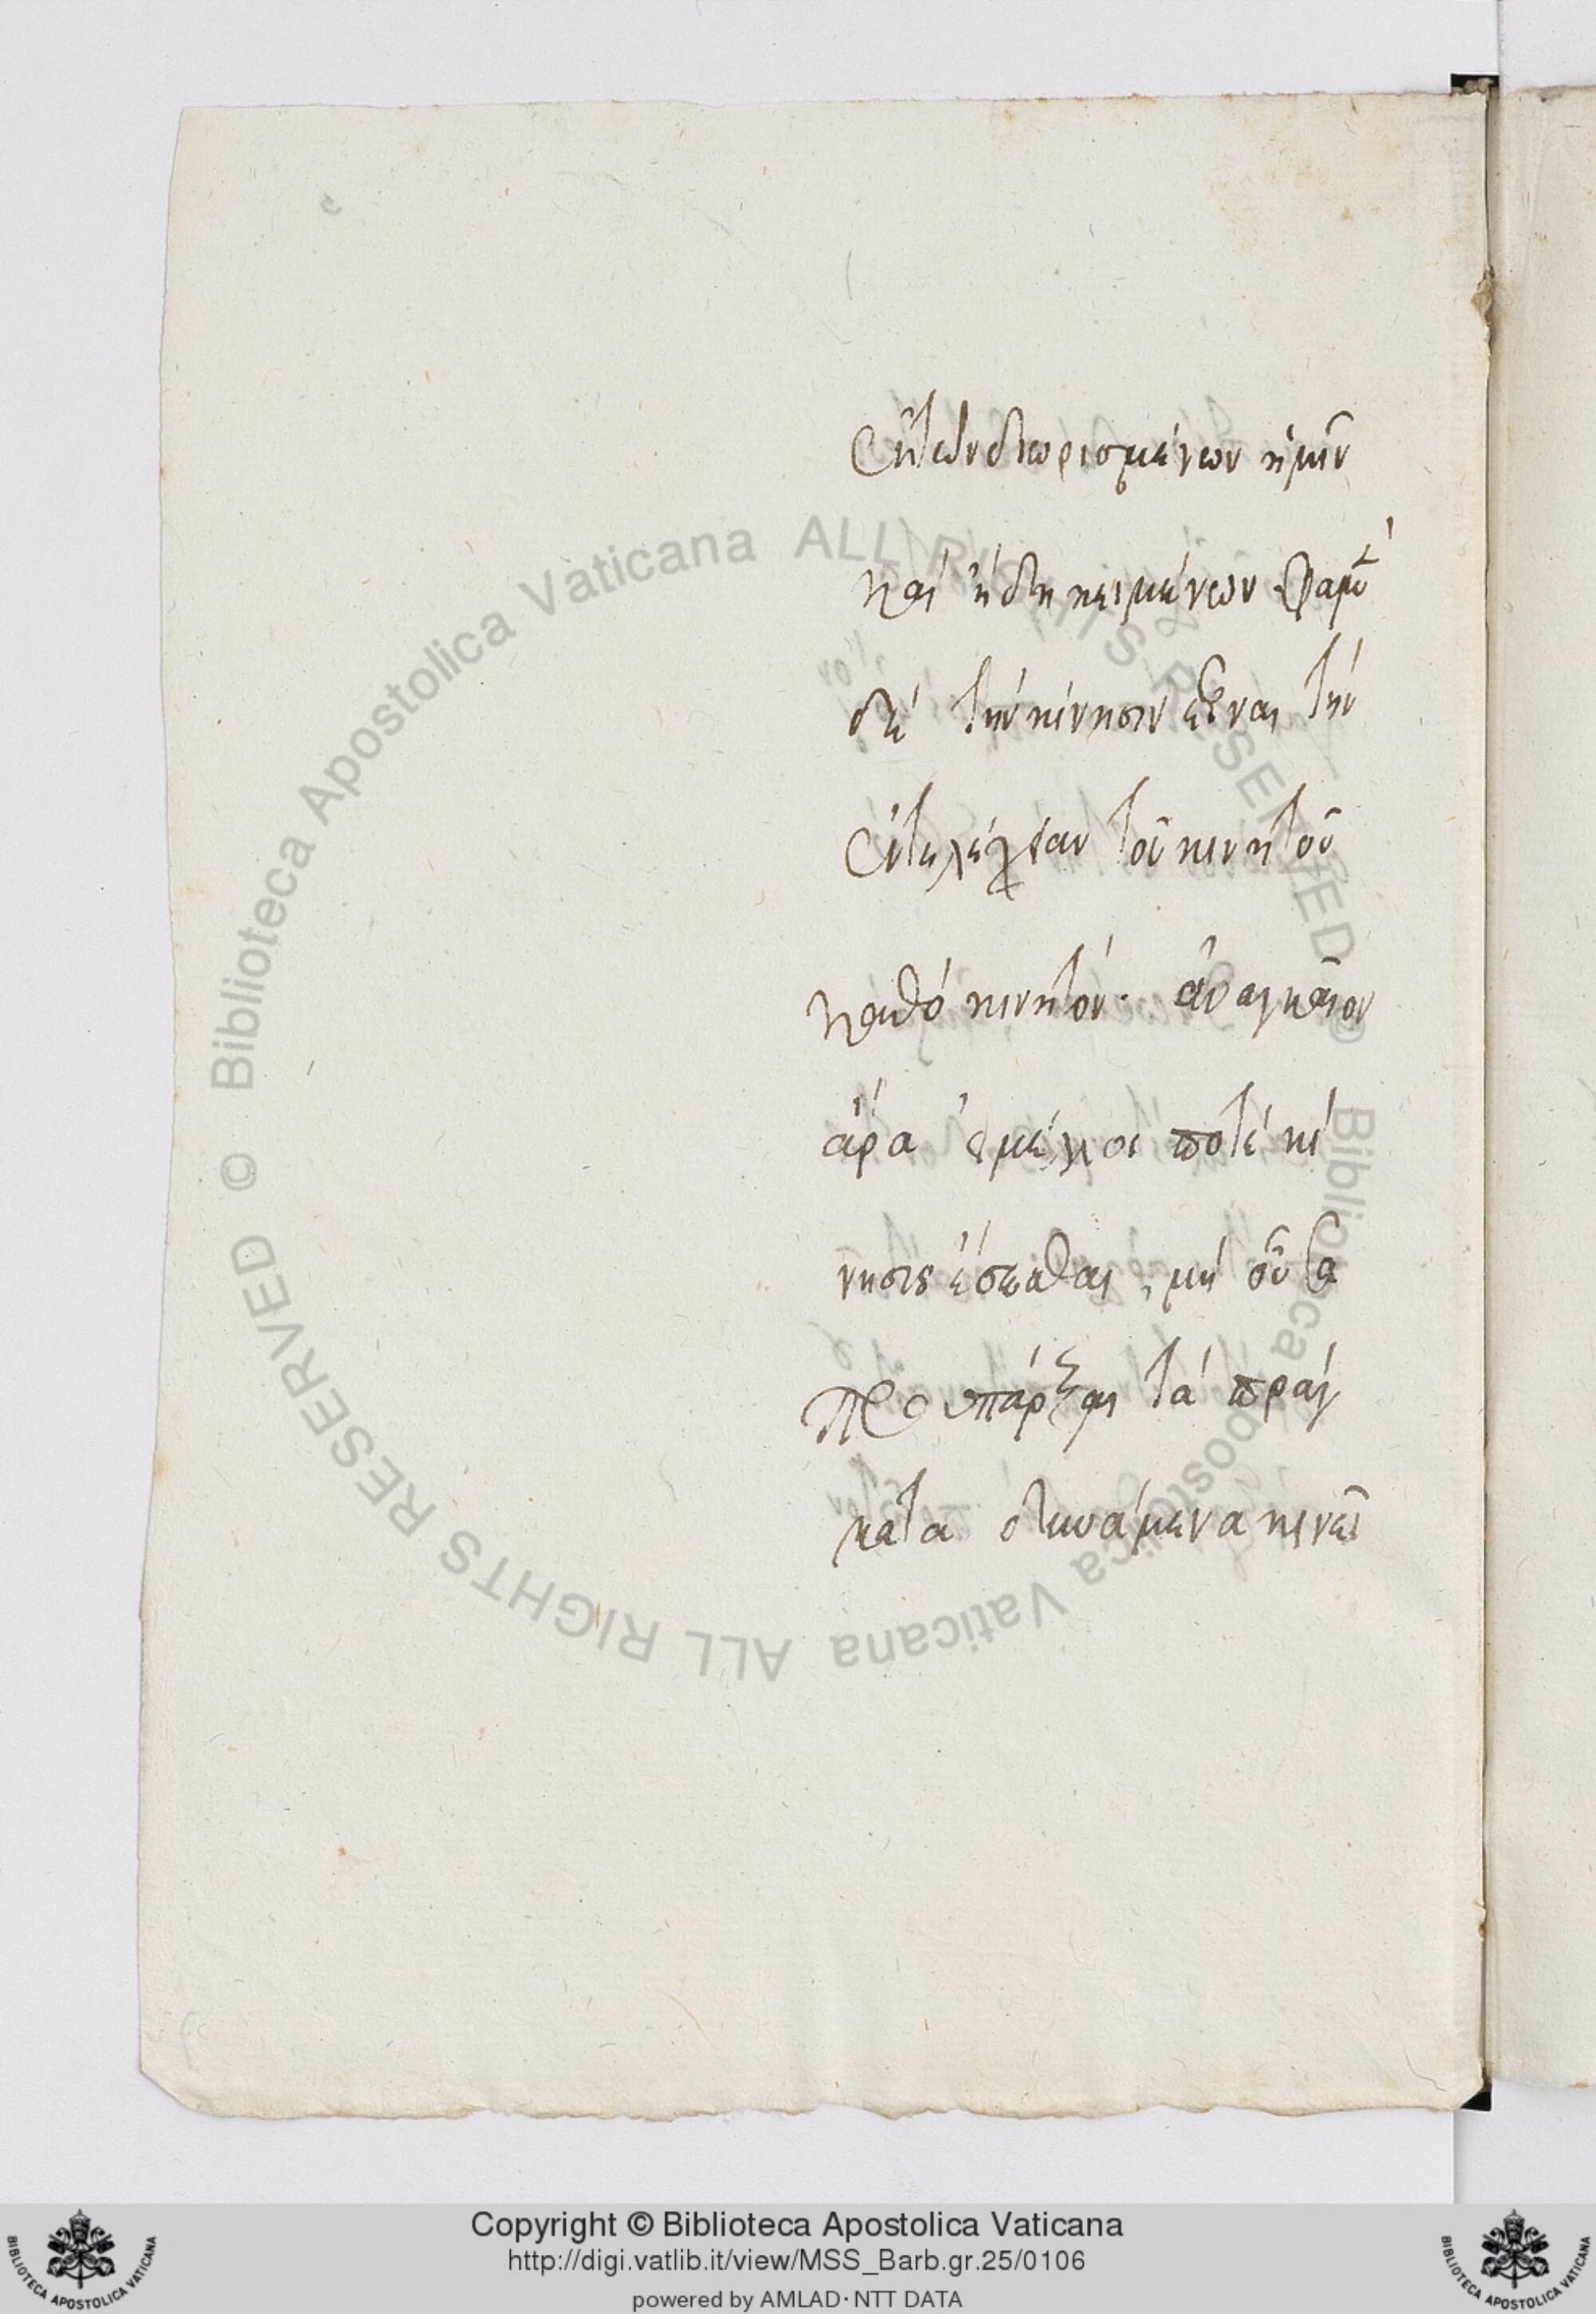 ἐκ τῶν διωρισμένων ἡμῖν
καὶ ἤδη κειμένων φαμὲ
δὲ τὴν κίνησιν εἶναι τὴν
ἐντελέχειαν τοῦ κινητοῦ
καθὸ κινητόν. ἀναγκαῖον
ἄρα εἰ μέλλοι ποτὲ κί
νησις ἔσεσθαι, μὴ οὖσα
προυπάρξαι τὰ πράγ
ματα δυνάμενα κινεῖ
© Biblioteca Apostolica Vaticana ALL RIGHTS RESERVED © Biblioteca Apostolica Vaticana ALL RIGHTS RESERVED
Copyright © Biblioteca Apostolica Vaticana
http://digi.vatlib.it/view/MSS_Barb.gr.25/0106
powered by AMLAD·NTT DATA
BIBLIOTECA APOSTOLICA VATICANA
BIBLIOTECA APOSTOLICA VATICANA